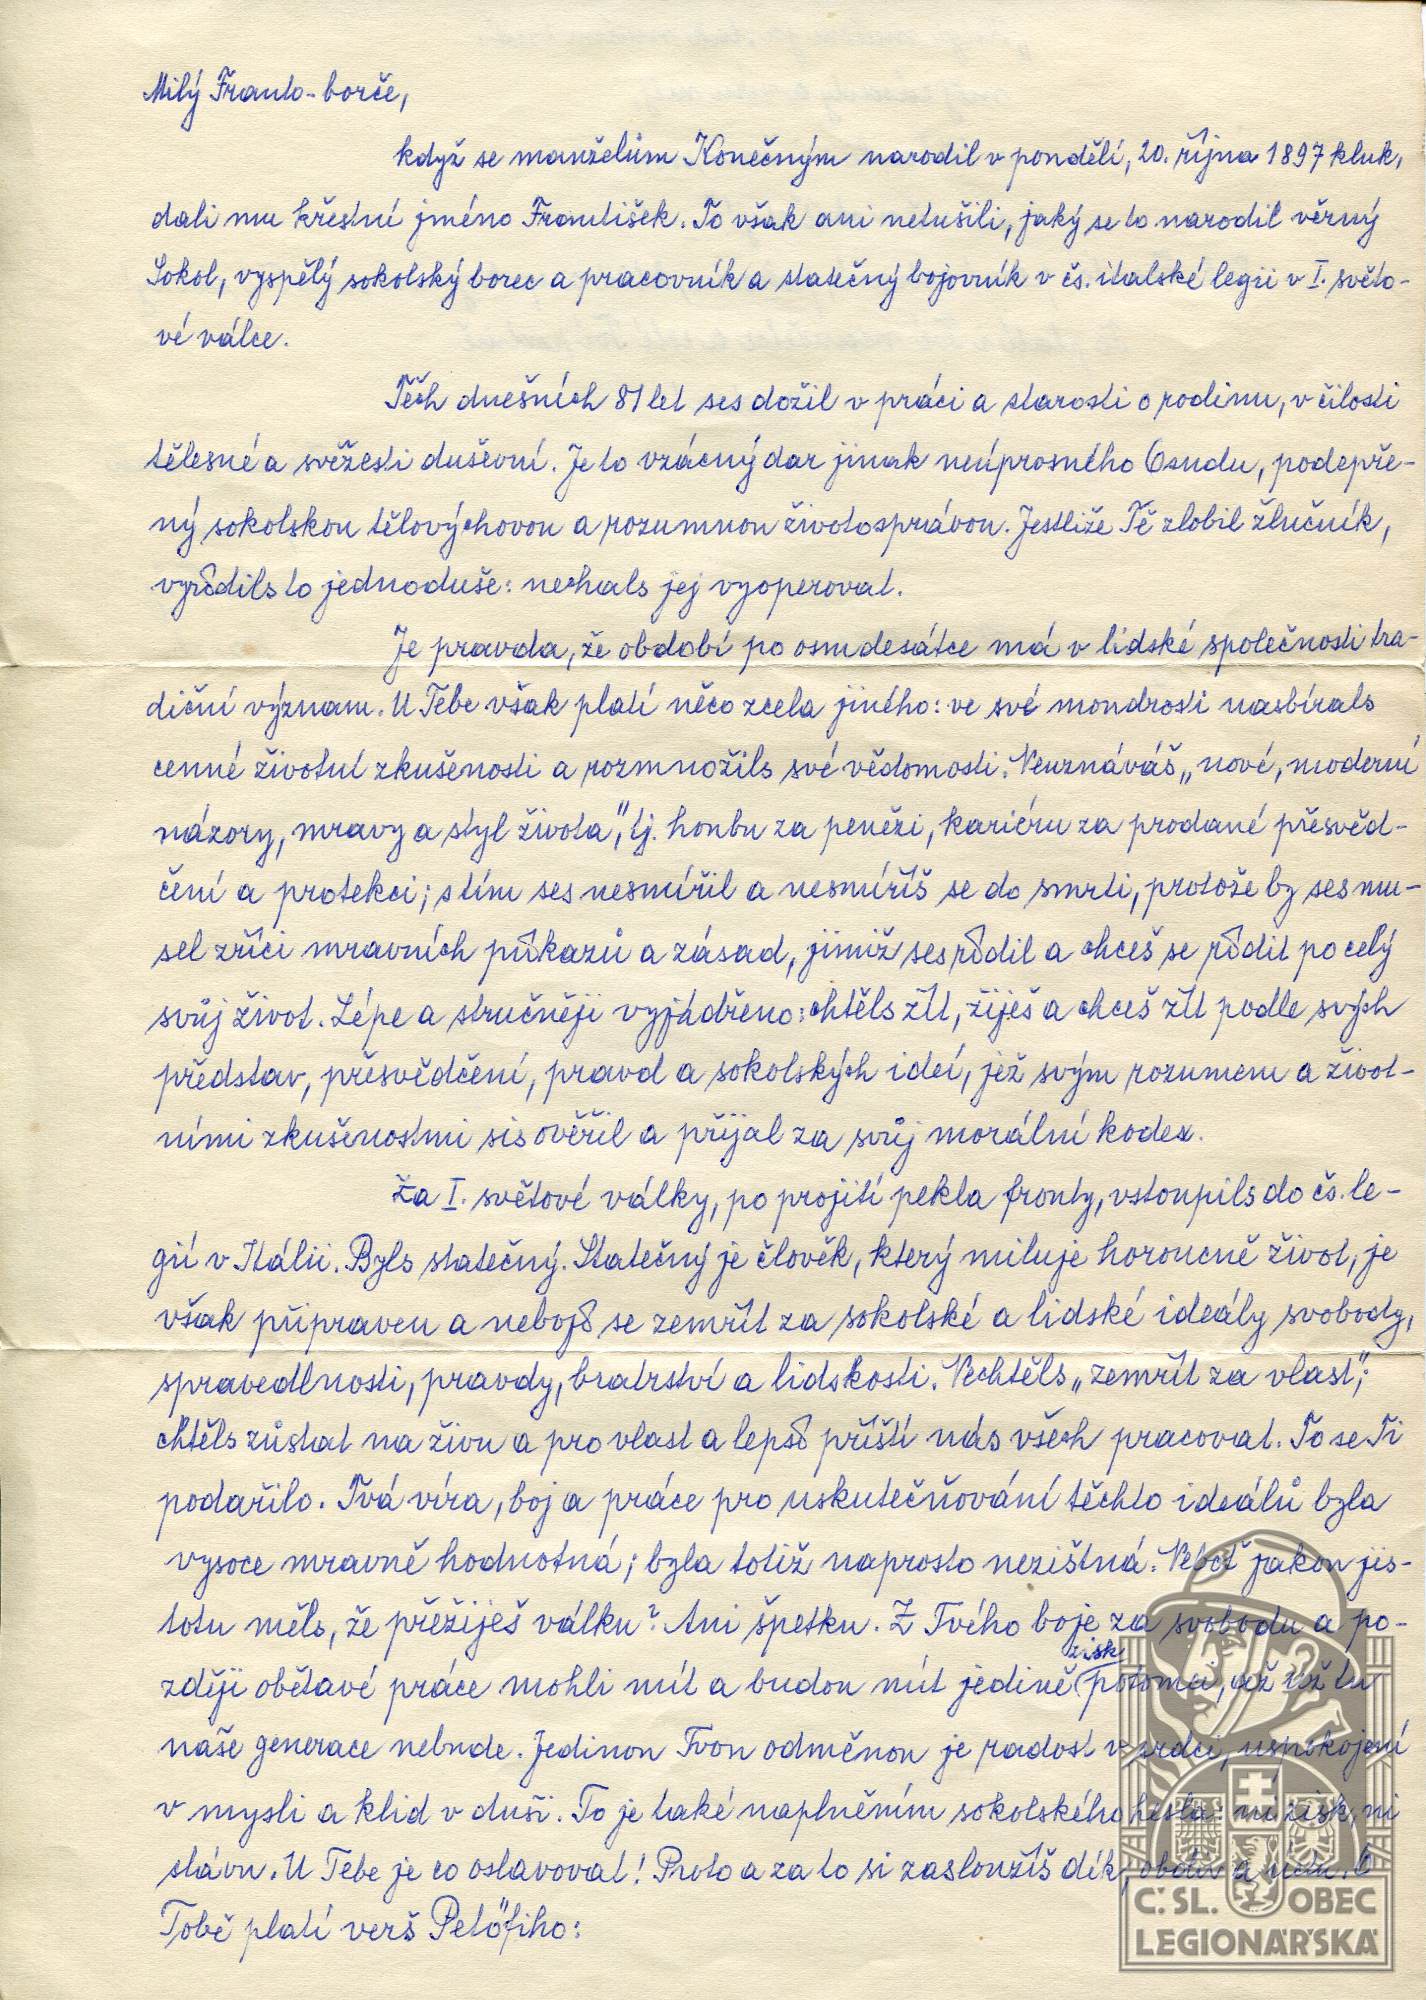 Milý Franto-borče,
když se manželům Konečným narodil v pondělí, 20. října 1897 kluk,
dali mu křestní jméno František. To však ani netušili, jaký se to narodil věrný
Sokol, vyspělý sokolský borec a pracovník a statečný bojovník v čs. italské legii v I. světo-
vé válce.
Těch dnešních 81 let ses dožil v práci a starosti o rodinu, v čilosti
tělesné a svěžesti duševní. Je to vzácný dar jinak neúprosného Osudu, podepře-
ný sokolskou tělovýchovou a rozumnou životosprávou. Jestliže Tě zlobil žlučník,
vyřídils to jednoduše: nechals jej vyoperovat.
Je pravda, že období po osmdesátce má v lidské společnosti tra-
diční význam. U Tebe však platí něco zcela jiného: ve své moudrosti nasbírals
cenné životní zkušenosti a rozmnožils své vědomosti. Neuznáváš „nové, moderní
názory, mravy a styl života", tj. honbu za penězi, kariéru za prodané přesvěd-
čení a protekci; s tím ses nesmířil a nesmíříš se do smrti, protože by ses mu-
sel zříci mravních příkazů a zásad, jimiž ses řídil a chceš se řídit po celý
svůj život. Lépe a stručněji vyjádřeno: chtěls žít, žiješ a chceš žít podle svých
představ, přesvědčení, pravd a sokolských ideí, jež svým rozumem a život-
ními zkušenostmi sis ověřil a přijal za svůj morální kodex.
Za I. světové války, po projití pekla fronty, vstoupils do čs. le-
gií v Itálii. Byls statečný. Statečný je člověk, který miluje horoucně život, je
však připraven a nebojí se zemřít za sokolské a lidské ideály svobody,
spravedlnosti, pravdy, bratrství a lidskosti. Nechtěls „zemřít za vlast";
chtěls zůstat na živu a pro vlast a lepší příští nás všech pracovat. To se Ti
podařilo. Tvá víra, boj a práce pro uskutečňování těchto ideálů byla
vysoce mravně hodnotná; byla totiž naprosto nezištná. Neboť jakou jis-
totu měls, že přežiješ válku? Ani špetku. Z Tvého boje za svobodu a po-
zději obětavé práce mohli mít a budou mít jedině zisk potomci, až už tu
naše generace nebude. Jedinou Tvou odměnou je radost v srdci, uspokojení
v mysli a klid v duši. To je také naplněním sokolského hesla: ni zisk, ni
slávu. U Tebe je co oslavovat! Proto a za to si zasloužíš dík, obdiv a úctu. O
Tobě platí verš Petőfiho:
Č. SL. OBEC
LEGIONÁŘSKÁ